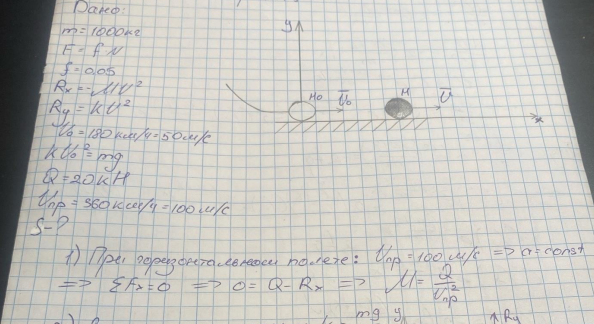 Дано:
m = 1000 кг
F = fN
f = 0,05
Rx = -μV²
Ry = kV²
V₀ = 180 км/ч = 50 м/с
kV₀² = mg
Q = 20 кН
Vпр = 360 км/ч = 100 м/с
S - ?
y
M₀ V̅₀ M V̅
x
1) При горизонтальном полете: Vпр = 100 м/с => a = const
=> ΣFx = 0 => 0 = Q - Rx => μ = Q / Vпр²
mg y Ry